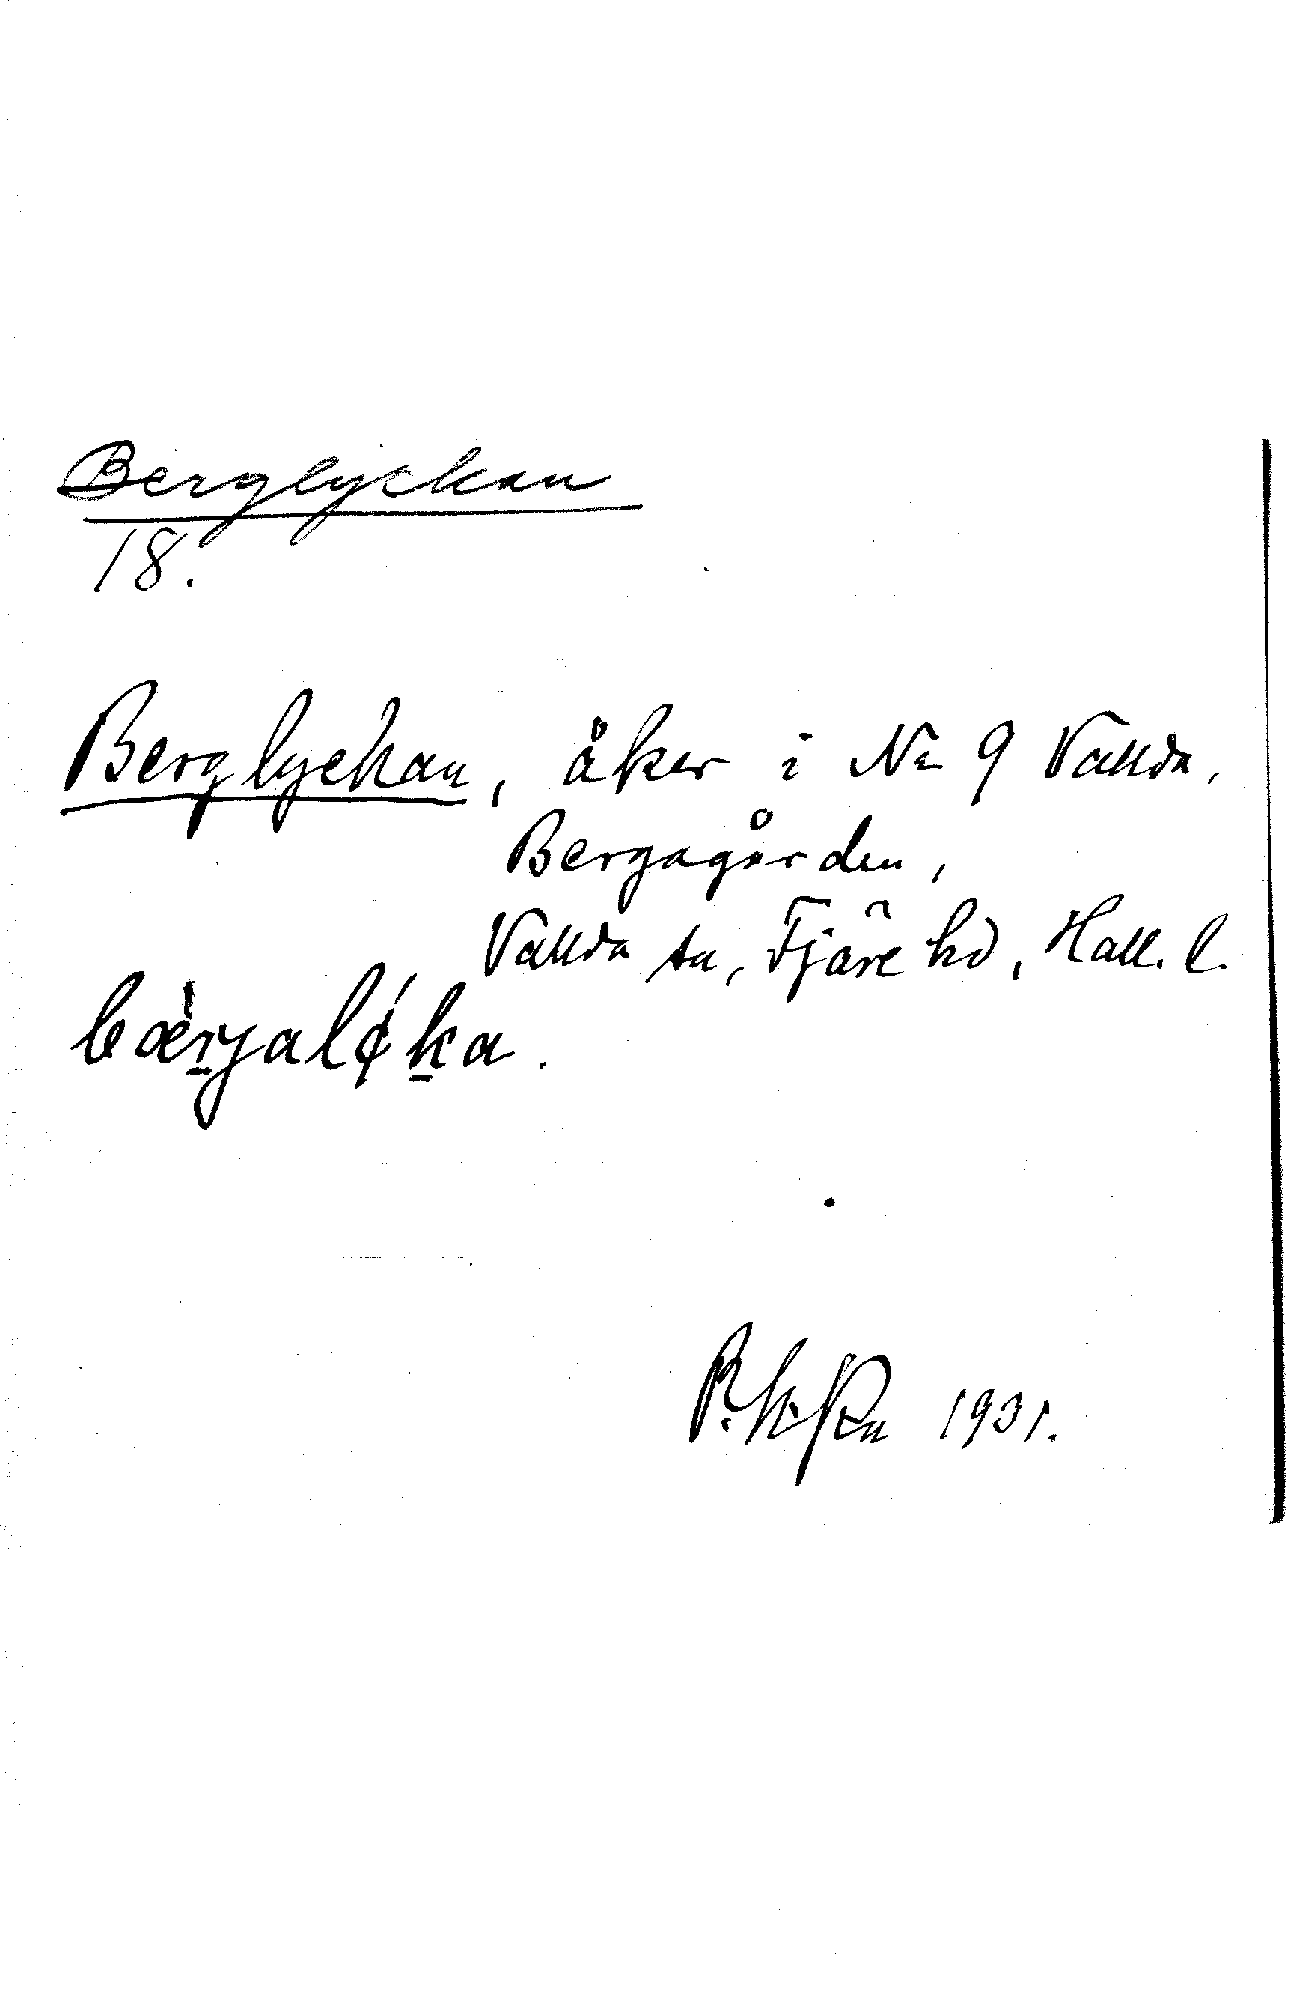 Berglyckan
18.
Berglyckan, åker i No 9 Vallda,
Bergagården,
Vallda sn, Fjäre hd, Hall. l.
bæ̀r̠jalǿk̠a.
1931.